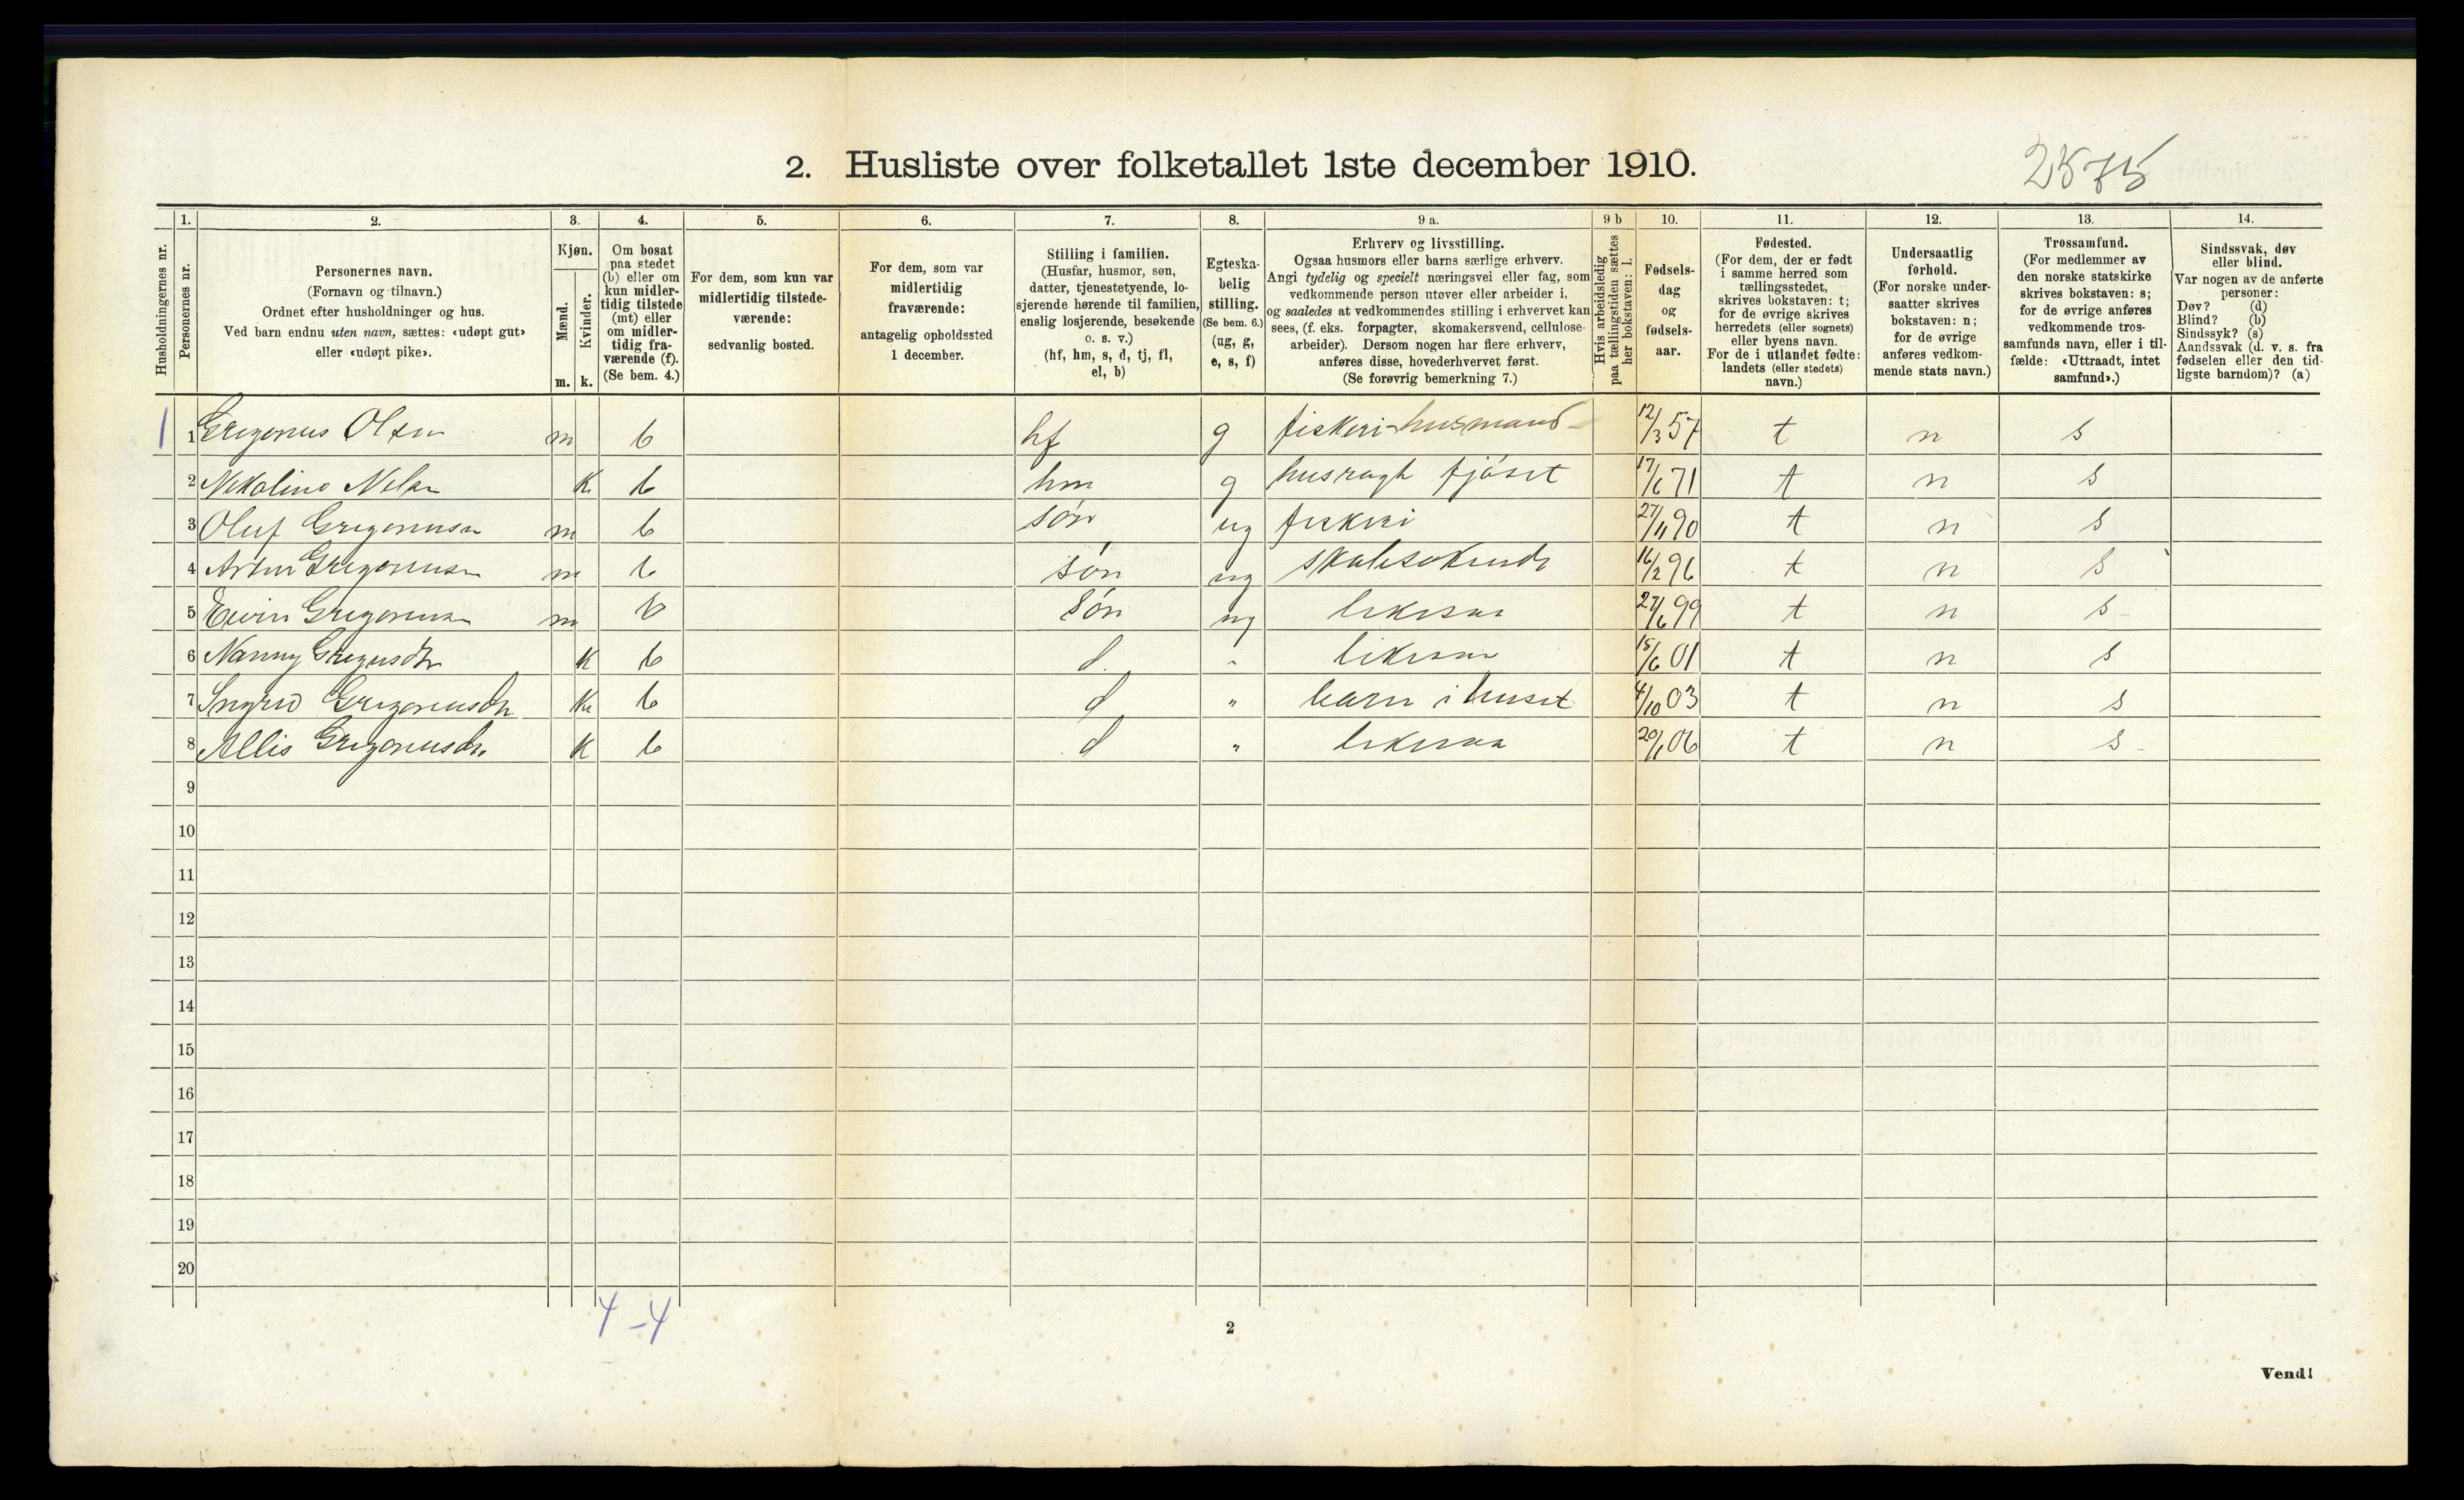 2. Husliste over folketallet 1ste december 1910.
2575
1. 2. 3. 4. 5. 6. 7. 8. 9 a. 9 b 10. 11. 12. 13. 14.
Husholdningernes nr.
Personernes nr.
Personernes navn.
(Fornavn og tilnavn.)
Ordnet efter husholdninger og hus.
Ved barn endnu uten navn, sættes: «udøpt gut»
eller «udøpt pike».
Kjøn.
Mænd.
Kvinder.
m. k.
Om bosat
paa stedet
(b) eller om
kun midler-
tidig tilstede
(mt) eller
om midler-
tidig fra-
værende (f).
(Se bem. 4.)
For dem, som kun var
midlertidig tilstede-
værende:
sedvanlig bosted.
For dem, som var
midlertidig
fraværende:
antagelig opholdssted
1 december.
Stilling i familien.
(Husfar, husmor, søn,
datter, tjenestetyende, lo-
sjerende hørende til familien,
enslig losjerende, besøkende
o. s. v.)
(hf, hm, s, d, tj, fl,
el, b)
Egteska-
belig
stilling.
(Se bem. 6.)
(ug, g,
e, s, f)
Erhverv og livsstilling.
Ogsaa husmors eller barns særlige erhverv.
Angi tydelig og specielt næringsvei eller fag, som
vedkommende person utøver eller arbeider i,
og saaledes at vedkommendes stilling i erhvervet kan
sees, (f. eks. forpagter, skomakersvend, cellulose-
arbeider). Dersom nogen har flere erhverv,
anføres disse, hovederhvervet først.
(Se forøvrig bemerkning 7.)
Hvis arbeidsledig
paa tællingstiden sættes
her bokstaven: l.
Fødsels-
dag
og
fødsels-
aar.
Fødested.
(For dem, der er født
i samme herred som
tællingsstedet,
skrives bokstaven: t;
for de øvrige skrives
herredets (eller sognets)
eller byens navn.
For de i utlandet fødte:
landets (eller stedets)
navn.)
Undersaatlig
forhold.
(For norske under-
saatter skrives
bokstaven: n;
for de øvrige
anføres vedkom-
mende stats navn.)
Trossamfund.
(For medlemmer av
den norske statskirke
skrives bokstaven: s;
for de øvrige anføres
vedkommende tros-
samfunds navn, eller i til-
fælde: «Uttraadt, intet
samfund».)
Sindssvak, døv
eller blind.
Var nogen av de anførte
personer:
Døv? (d)
Blind? (b)
Sindssyk? (s)
Aandssvak (d. v. s. fra
fødselen eller den tid-
ligste barndom)? (a)
1 1 Gregorius Olsen m b hf g fiskeri-husmand 12/3 57 t n s
2 k b hm g fjöset 17/6 71 t n s
3 Oluf Gregoriusn m b sön ug fiskeri 27/11 90 t n s
4 Artur Gregoriusn m b sön ug skolesökende 16/2 96 t n s
5 Gregoriusn m b sön ug likesaa 27/6 99 t n s
6 Nanny k b d. " likesaa 15/6 01 t n s
7 Ingrid Gregoriusdtr k b d " barn i huset 4/10 03 t n s
8 Allis Gregoriusdtr. k b d " likesaa 20/1 06 t n s
9
10
11
12
13
14
15
16
17
18
19
20
4 - 4
2
Vend!